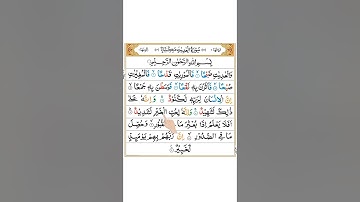 بِسْمِ اللهِ الرَّحْمٰنِ الرَّحِيْمِ
وَالْعٰدِيٰتِ ضَبْحًا ۙ فَالْمُوْرِيٰتِ قَدْحًا ۙ فَالْمُغِيْرٰتِ
صُبْحًا ۙ فَاَثَرْنَ بِهٖ نَقْعًا ۙ فَوَسَطْنَ بِهٖ جَمْعًا ۙ
اِنَّ الْاِنْسَانَ لِرَبِّهٖ لَكَنُوْدٌ ۚ وَاِنَّهٗ عَلٰى
ذٰلِكَ لَشَهِيْدٌ ۚ وَاِنَّهٗ لِحُبِّ الْخَيْرِ لَشَدِيْدٌ ؕ
اَفَلَا يَعْلَمُ اِذَا بُعْثِرَ مَا فِى الْقُبُوْرِ ۙ وَحُصِّلَ
مَا فِى الصُّدُوْرِ ۙ اِنَّ رَبَّهُمْ بِهِمْ يَوْمَئِذٍ
لَّخَبِيْرٌ